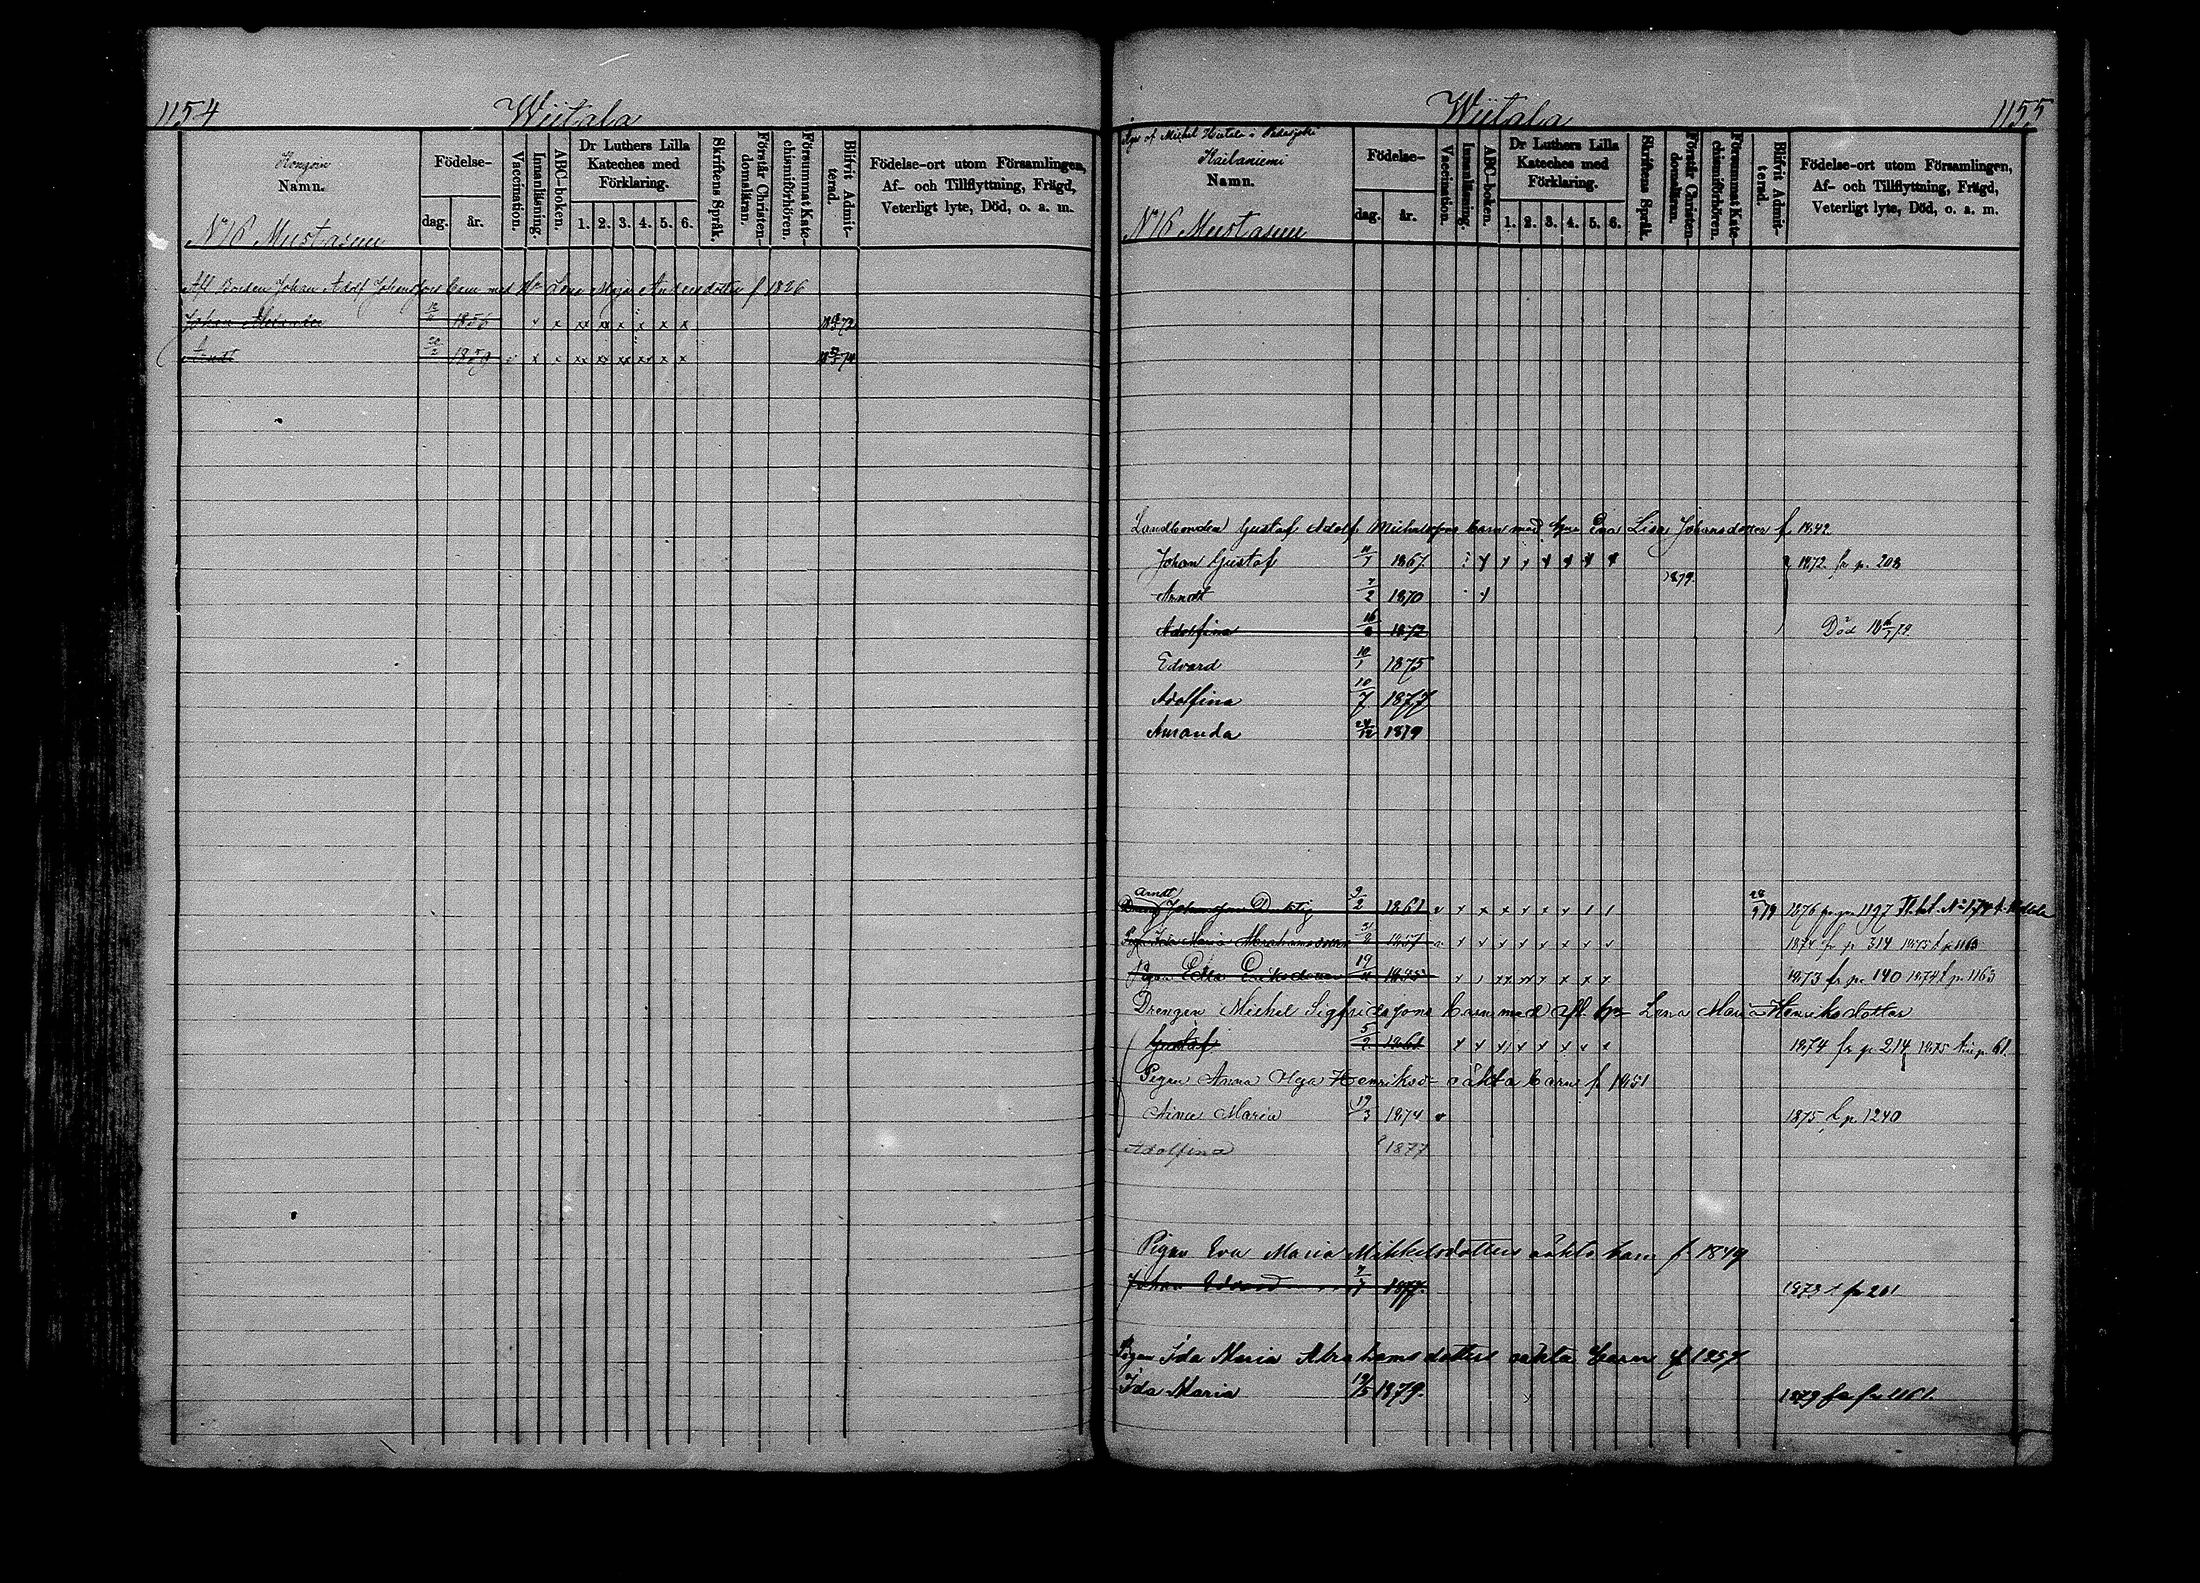 1154 Wiitala
Namn. Födelse- dag. år. Vaccination. Innanläsning. ABC-boken. Dr Luthers Lilla Kateches med Förklaring. 1. 2. 3. 4. 5. 6. Skriftens Språk. Förstår Christendomsläran. Försummat Katechismiförhören. Blifvit Admitterad. Födelse-ort utom Församlingen, Af- och Tillflyttning, Frägd, Veterligt lyte, Död, o. a. m.
N:o 16 Mustasuu
Afl Johan Adolf barn med Lena Maja Andersdotter f 1826
Johan 1856
Arndt 1859
Wiitala 1155
Äges af Michel i
Kailaniemi
Namn. Födelse- dag. år. Vaccination. Innanläsning. ABC-boken. Dr Luthers Lilla Kateches med Förklaring. 1. 2. 3. 4. 5. 6. Skriftens Språk. Förstår Christendomsläran. Försummat Katechismiförhören. Blifvit Admitterad. Födelse-ort utom Församlingen, Af- och Tillflyttning, Frägd, Veterligt lyte, Död, o. a. m.
N:o 16 Mustasuu
Landbonden Gustaf Adolf Michelssons barn med Eva Lisa Johansdotter f. 1842
Johan Gustaf 1867 1872 fr p. 208
1879
Arndt 7/2 1870
Adolfina 1872 Död
Edvard 10/1 1875
Adolfina 10/7 1877
Amanda 1879
Arndt
9/2 1861 1876
Pig. Ida Maria Abrahamsdotter 1857 1874 fr p 314 1875 t p 1163
Pigan Edla Eriksdotter 1873 fr p. 140 1874 t p. 1163
Drengen Michel Sigfridssons barn med afl. Lena Maria Henriksdotter
Gustaf 1861 1874 fr p 214 1875 p. 61.
Pigan Anna Olga Henriksd oäkta barn f. 1851
Maria 19/3 1874 1875 t p. 1240
Adolfina 1877
Pigan Eva Maria Mikkelsdotters oäkta barn f. 1849
Johan Edvard 1877.
Pigan Ida Maria Abrahamsdotters oäkta barn f 1857
Ida Maria 1879. 1879 fr p. 1161.